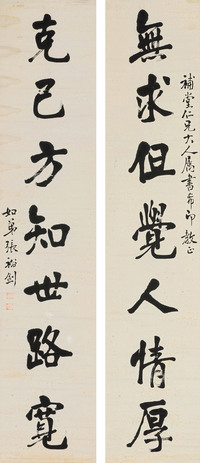 補堂仁兄大人屬書希即教正
無求但覺人情厚
克己方知世路寬
如弟張裕釗